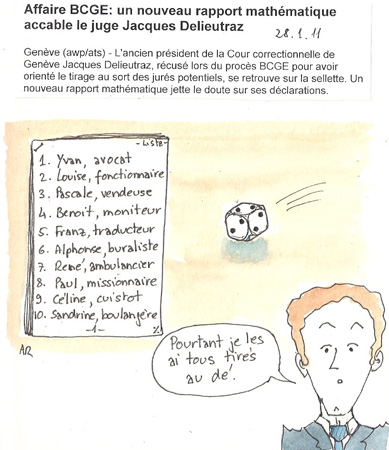 Affaire BCGE: un nouveau rapport mathématique
accable le juge Jacques Delieutraz
28.1.11
Genève (awp/ats) - L'ancien président de la Cour correctionnelle de
Genève Jacques Delieutraz, récusé lors du procès BCGE pour avoir
orienté le tirage au sort des jurés potentiels, se retrouve sur la sellette. Un
nouveau rapport mathématique jette le doute sur ses déclarations.
- Liste -
1. Yvan, avocat
2. Louise, fonctionnaire
3. Pascale, vendeuse
4. Benoit, moniteur
5. Franz, traducteur
6. Alphonse, buraliste
7. René, ambulancier
8. Paul, missionnaire
9. Céline, cuistot
10. Sandrine, boulangère
-1-
AR
Pourtant je les
ai tous tirés
au dé.